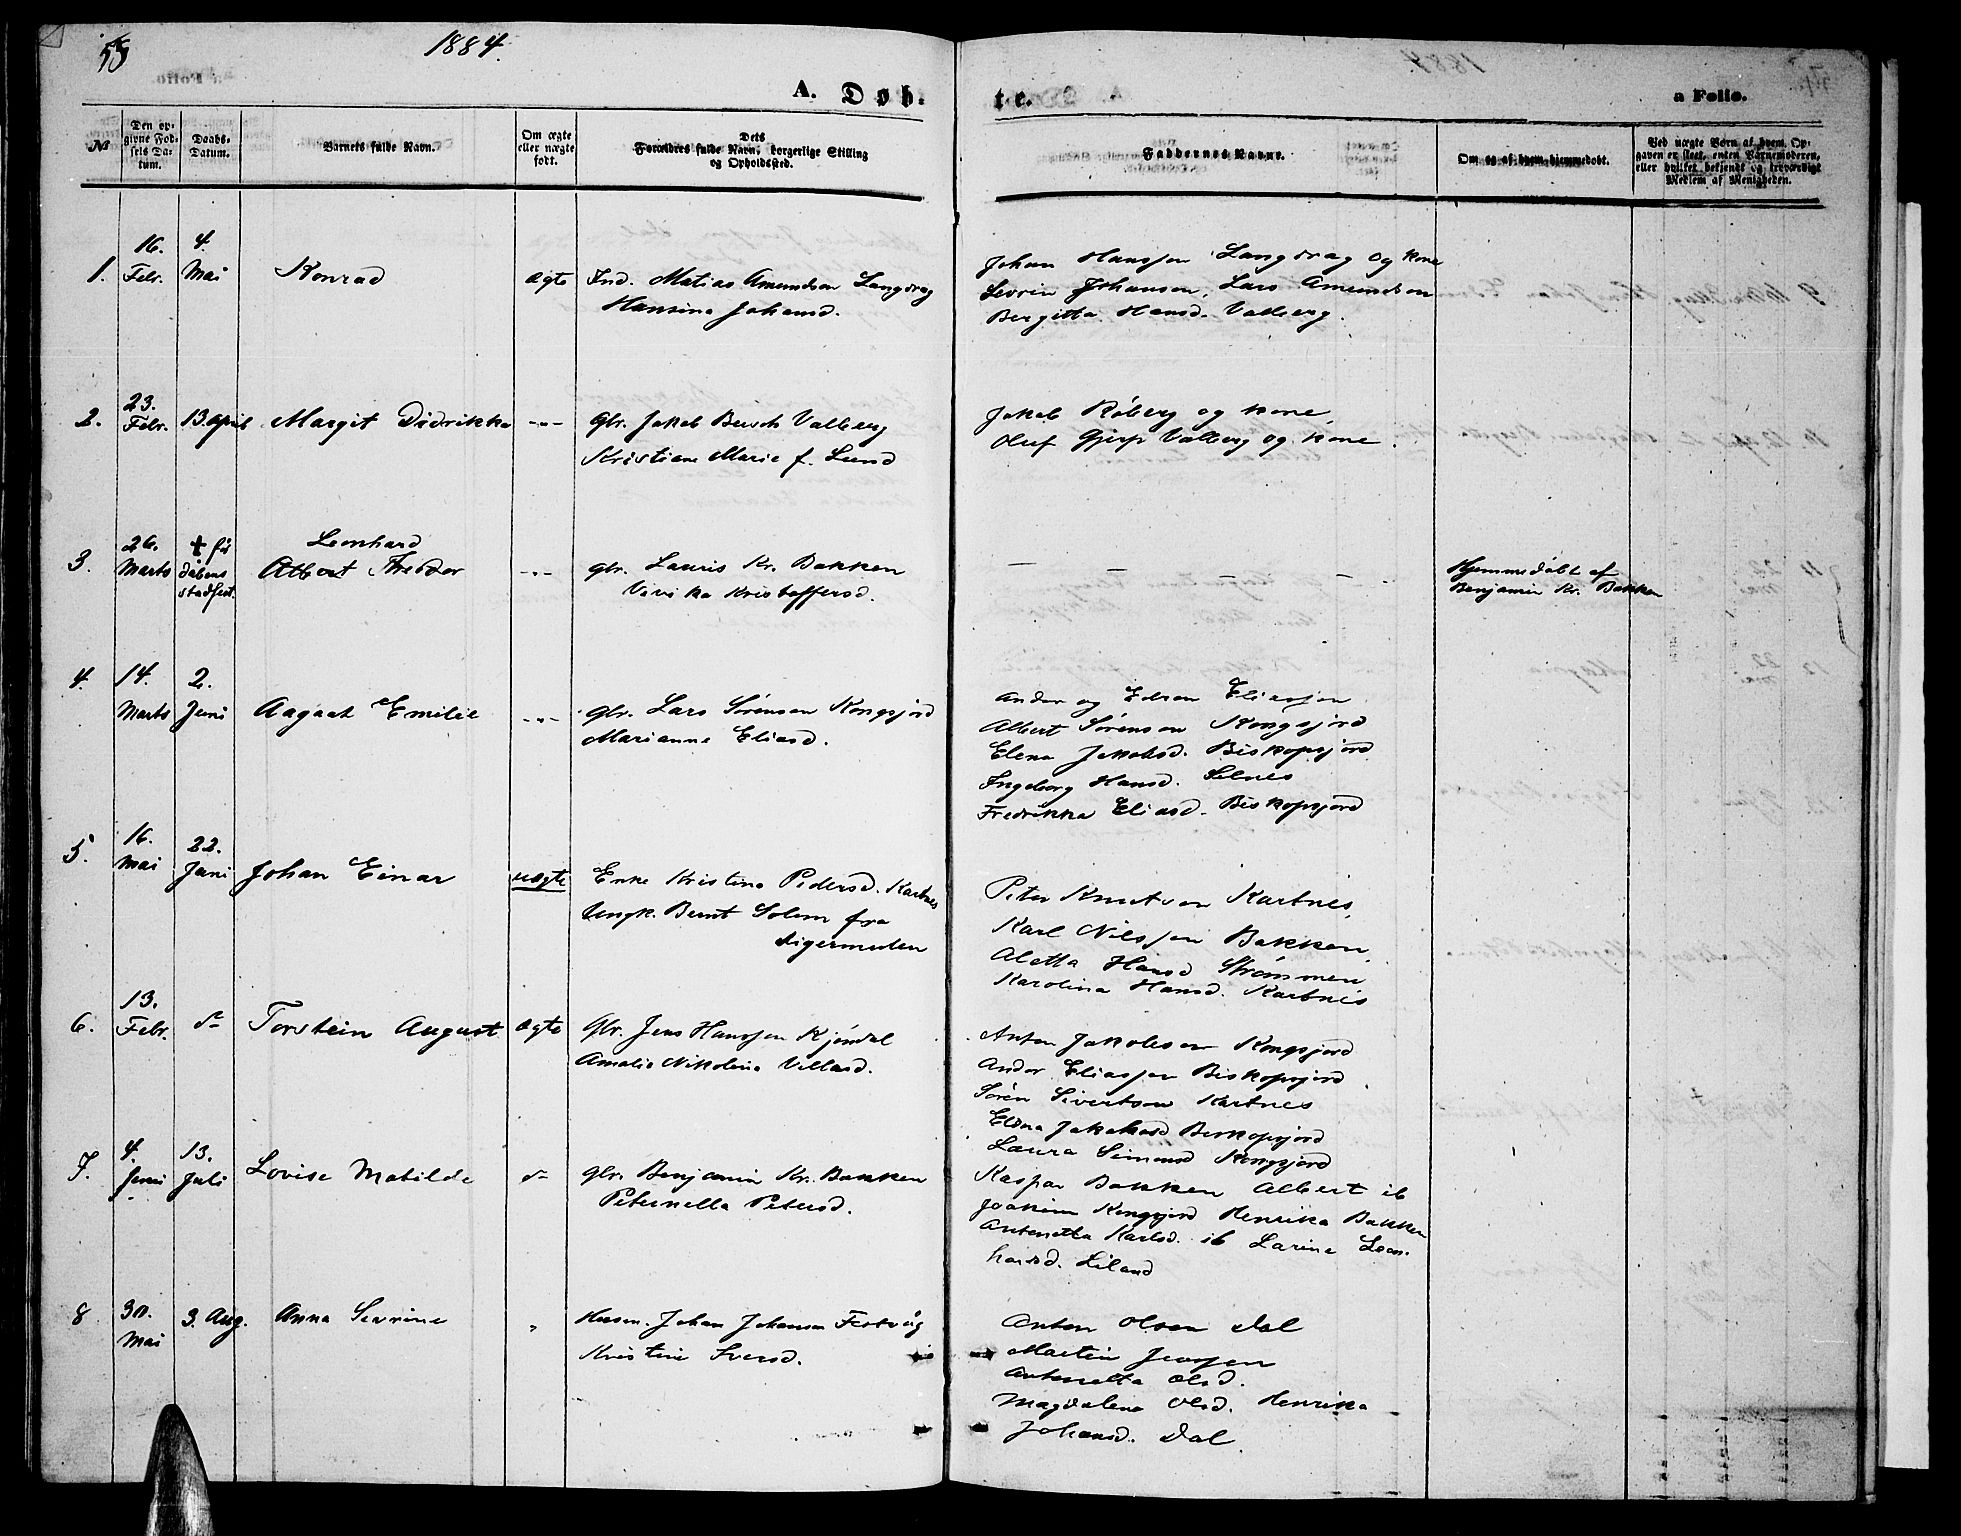 55
1884.
A. Døb-
te.
a Folio.
№
Den op-
givne Fød-
sels Da-
tum.
Daabs-
Datum.
Barnets fulde Navn.
Om ægte
eller uægte
født.
Dets
Forældres fulde Navn, borgerlige Stilling
og Opholdssted.
Faddernes Navne.
Om og af hvem hjemmedøbt.
Ved uægte Børn af hvem Op-
gaven er skeet, enten Barnemoderen,
eller hvilket bekjendt og troværdigt
Medlem af Menigheden.
1.
16.
Febr.
4.
Mai
Konrad
ægte
Ind. Matias Amundsen Langdrag
Hansine Johansd.
Johan Hanssen Langdrag og kone
Sevrin Johansen, Lars Amundsen
Bergitta Hansd. Valberg.
2.
23.
Febr.
13. april
Margit Didrikka
-"-
Gbr. Jakob Busch Valberg
Kristiane Marie f. Lund
Jakob Röberg og kone,
Oluf Gjerp Valberg og kone.
3.
26.
Marts
+ för
dåbens
stadfest.
Leonhard
Albert Theodor
-"-
gbr. Lauris Kr. Bakken
Vivika Kristoffersd.
Hjemmedöbt af
Benjamin Kr. Bakken
4.
14.
Marts
2.
Juni
Aagaat Emilie
-"-
gbr. Lars Sörensen Kongsjord
Marianne Eliasd.
Andor og Edvon Eliassen
Albert Sörensen Kongsjord
Elena Jakobsd. Biskopsjord
Ingeborg Hansd. Silnes
Fredrikka Eliasd. Biskopsjord
5.
16.
Mai
22.
Juni
Johan Einar
uægte
Enke Kristina Pedersd. Kartnes
Ungk. Bernt Solem fra
Digermulen
Peter Knutsen Kartnes,
Karl Nilssen Bakken,
Aletta Hansd Strømmen
Karolina Hansd. Kartnes
6.
13.
Febr.
do
Torstein August
ægte
Gbr. Jens Hanssen Kjöndal
Amalie Nikoline Villasd.
Anton Jakobsen Kongsjord
Andor Eliassen Biskopsjord
Sören Sivertsen Kartnes
Elena Jakobsd Biskopsjord
Laura Simonsd Kongsjord
7.
4.
Juni
13.
Juli
Lovise Matilde
do
gbr. Benjamin Kr. Bakken
Peternella Petersd.
Kaspar Bakken Albert ib
Joakim Kongsjord Henrika Bakken
Antonetta Karlsd. ib Larine Leon-
hardsd. Liland
8
30.
Mai
3. Aug.
Anna Sevrine
"
Husm. Johan Johansen Festvåg
Kristine Iversd.
Anton Olsen Dal
Martin Jenssen
Antonetta Olsd.
Magdalena Olsd. Henrika
Johansd. Dal.